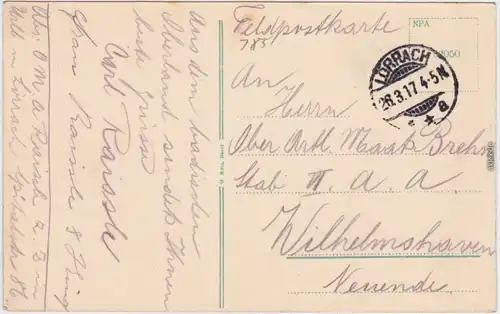 Feldpostkarte
785
NPA
2050
LÖRRACH
26.3.17 4-5N
a
An
Herrn
Ober Artl. Maat Brehn
Stab II. A. A.
Wilhelmshaven
Neuende
Aus dem badischen
Oberland sendet Ihnen
beste Grüsse
Carl Raissle
Frau Raissle &
Abs. O M A Raissle z. Z. in
in Lörrach